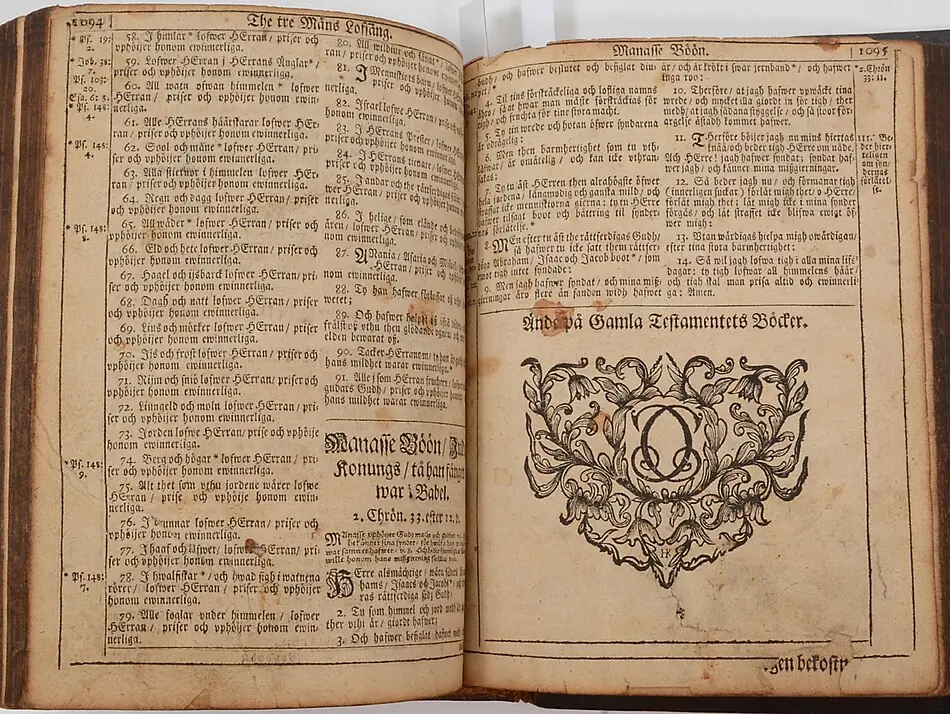 1094
The tre Mäns Lofsång.
58. I
hunlar* lofwer HErran / priser och
vphöijer honom ewinnerliga.
59. Lofwer HErran / HErrans Änglar* /
priser och vphöijer honom ewinnerliga.
60. All watn ofwan himmelen* lofwer
HErran / priser och vphöijer honom ewin-
nerliga.
61. Alle HErrans häärskarar lofwer HEr-
ran / priser och vphöijer honom ewinnerliga.
62. Sool och måne* lofwer HErran / pri-
ser och vphöijer honom ewinnerliga.
63. Alla stiernor i himmelen lofwer HEr-
ran / priser och vphöijer honom ewinnerliga.
64. Regn och dagg lofwer HErran / priser
och vphöijer honom ewinnerliga.
65. All wäder* lofwer HErran / priser och
vphöijer honom ewinnerliga.
66. Eld och hete lofwer HErran / priser och
vphöijer honom ewinnerliga.
67. Hagel och ijsbarck lofwer HErran / priser
och vphöijer honom ewinnerliga.
68. Dagh och natt lofwer HErran / priser
och vphöijer honom ewinnerliga.
69. Lius och mörker lofwer HErran / priser
och vphöijer honom ewinnerliga.
70. Ijs och frost lofwer HErran / priser och
vphöijer honom ewinnerliga.
71. Rijm och sniö lofwer HErran / priser och
vphöijer honom ewinnerliga.
72. Liungeld och moln lofwer HErran / pri-
ser och vphöijer honom ewinnerliga.
73. Jorden lofwe HErran / prise och vphöije
honom ewinnerliga.
74. Berg och högar* lofwer HErran / pri-
ser och vphöijer honom ewinnerliga.
75. Alt thet som vthu jordene wäxer lofwe
HErran / prise och vphöije honom ewin-
nerliga.
76. I brunnar lofwer HErran / priser och
vphöijer honom ewinnerliga.
77. I haaf och älfwer / lofwer HErran / priser
och vphöijer honom ewinnerliga.
78. I hwalfiskar* / och hwad sigh i watnena
rörer / lofwer HErran / priser och vphöijer
honom ewinnerliga.
79. Alle foglar vnder himmelen / lofwer
HErran / priser och vphöijer honom ewin-
nerliga.
* Ps. 19:
2.
* Job. 38:
7.
Ps. 103:
20.
Esa. 6: 3.
* Ps. 148:
4.
* Ps. 148:
4.
* Ps. 148:
8.
* Ps. 148:
9.
* Ps. 148:
7.
80. All wildiur och
ran / priser och vphöijer honom ewinnerliga.
81. I Menniskiors barn
nerliga.
82. Israel lofwe
83. I HErrans Prester /
84. I HErrans tienare /
85. I andar och the rättferdigas
wer HErran / priser och vphöijer
86. I helige / som
nom ewinnerliga.
87. ANania / Asaria och
HErran / priser och
nom ewinnerliga.
88. Ty han hafwer förlossat oß
wetet;
89. Och hafwer hulpit oß ifrå
frälst oß vthu then glödande
elden bewarat oß.
90. Tacker HErranom / ty han är
hans mildhet warar ewinnerliga.
91. Alle / som HErran fruchten /
gudars Gudh / priser och vphöijer
hans mildhet warar ewinnerliga.
Manasse Böön /
Konungs / tå han fången
war i Babel.
2. Chrön. 33. efter 12. v.
HErre alsmächtige / wåra
hams / Isaacs och Jacobs*
ras rättferdiga säds Gudh:
2. Tu som himmel och jord
ther vthi är / giordt hafwer;
3. Och hafwer beseglat hafwet med
Manasse Böön.
1095
budh / och hafwer beslutet och beseglat diu-
4. Til tins förskräckeliga och lofliga namns
ähro / så at hwar man måste förskräckias för
tigh / och fruchta för tine stora macht.
5. Ty tin wrede och hotan öfwer syndarena
är odrägelig;
6. Men then barmhertighet som tu vth-
lofwar / är omätelig / och kan icke vthran-
sakas;
7. Ty tu äst HErren then alrahögste öfwer
hela jordena / långmodig och ganska mild / och
straffar icke menniskorna gierna: ty tu HErre
hafwer tilsagt boot och bättring til synder-
nas förlåtelse.*
8. MEn efter tu äst the rättferdigas Gudh /
så hafwer tu icke satt them rättfer-
diga Abraham / Isaac och Jacob boot* / som
emot tigh intet syndade:
9. Men jagh hafwer syndat / och mina miß-
gierningar äro flere än sanden widh hafwet
är / och är krökt i swår jernband* / och hafwer
inga roo:
10. Therföre / at jagh hafwer vpwäckt tina
wrede / och mycket illa giordt in för tigh / ther
medh / at jagh sådana styggelse / och så stor för-
argelse åstadh kommet hafwer.
11. THerföre böijer jagh nu mins hiertas
knää / och beder tigh HErre om nåde.
Ach HErre! jagh hafwer syndat; syndat haf-
wer jagh / och känner mina mißgierningar.
12. Så beder jagh nu / och förmanar tigh
(innerliga och sampt) förlåt migh thet / o HErre!
förlåt migh thet; låt migh icke i mina synder
förgås / och låt straffet icke blifwa ewigt öf-
wer migh:
13. Vtan wärdigas hielpa migh owärdigan /
efter tina stora barmhertighet:
14. Så wil jagh lofwa tigh i alla mina lifs
dagar: ty tigh lofwar all himmelens häär /
och tigh skal man prisa altid och ewinnerli-
ga: Amen.
* 2. Chrön
33: 11.
III. Be-
der hier-
teligen
om syn-
dernas
förlåtel-
se.
Ände på Gamla Testamentets Böcker.
HK
gen bekosty